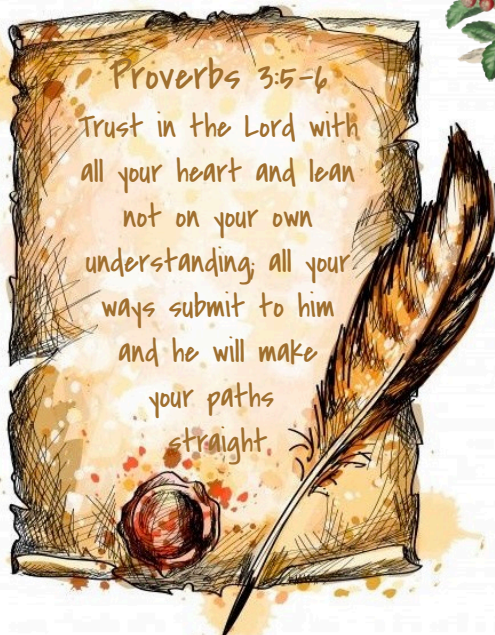 Proverbs 3:5-6
Trust in the Lord with
all your heart and lean
not on your own
understanding; all your
ways submit to him
and he will make
your paths
straight